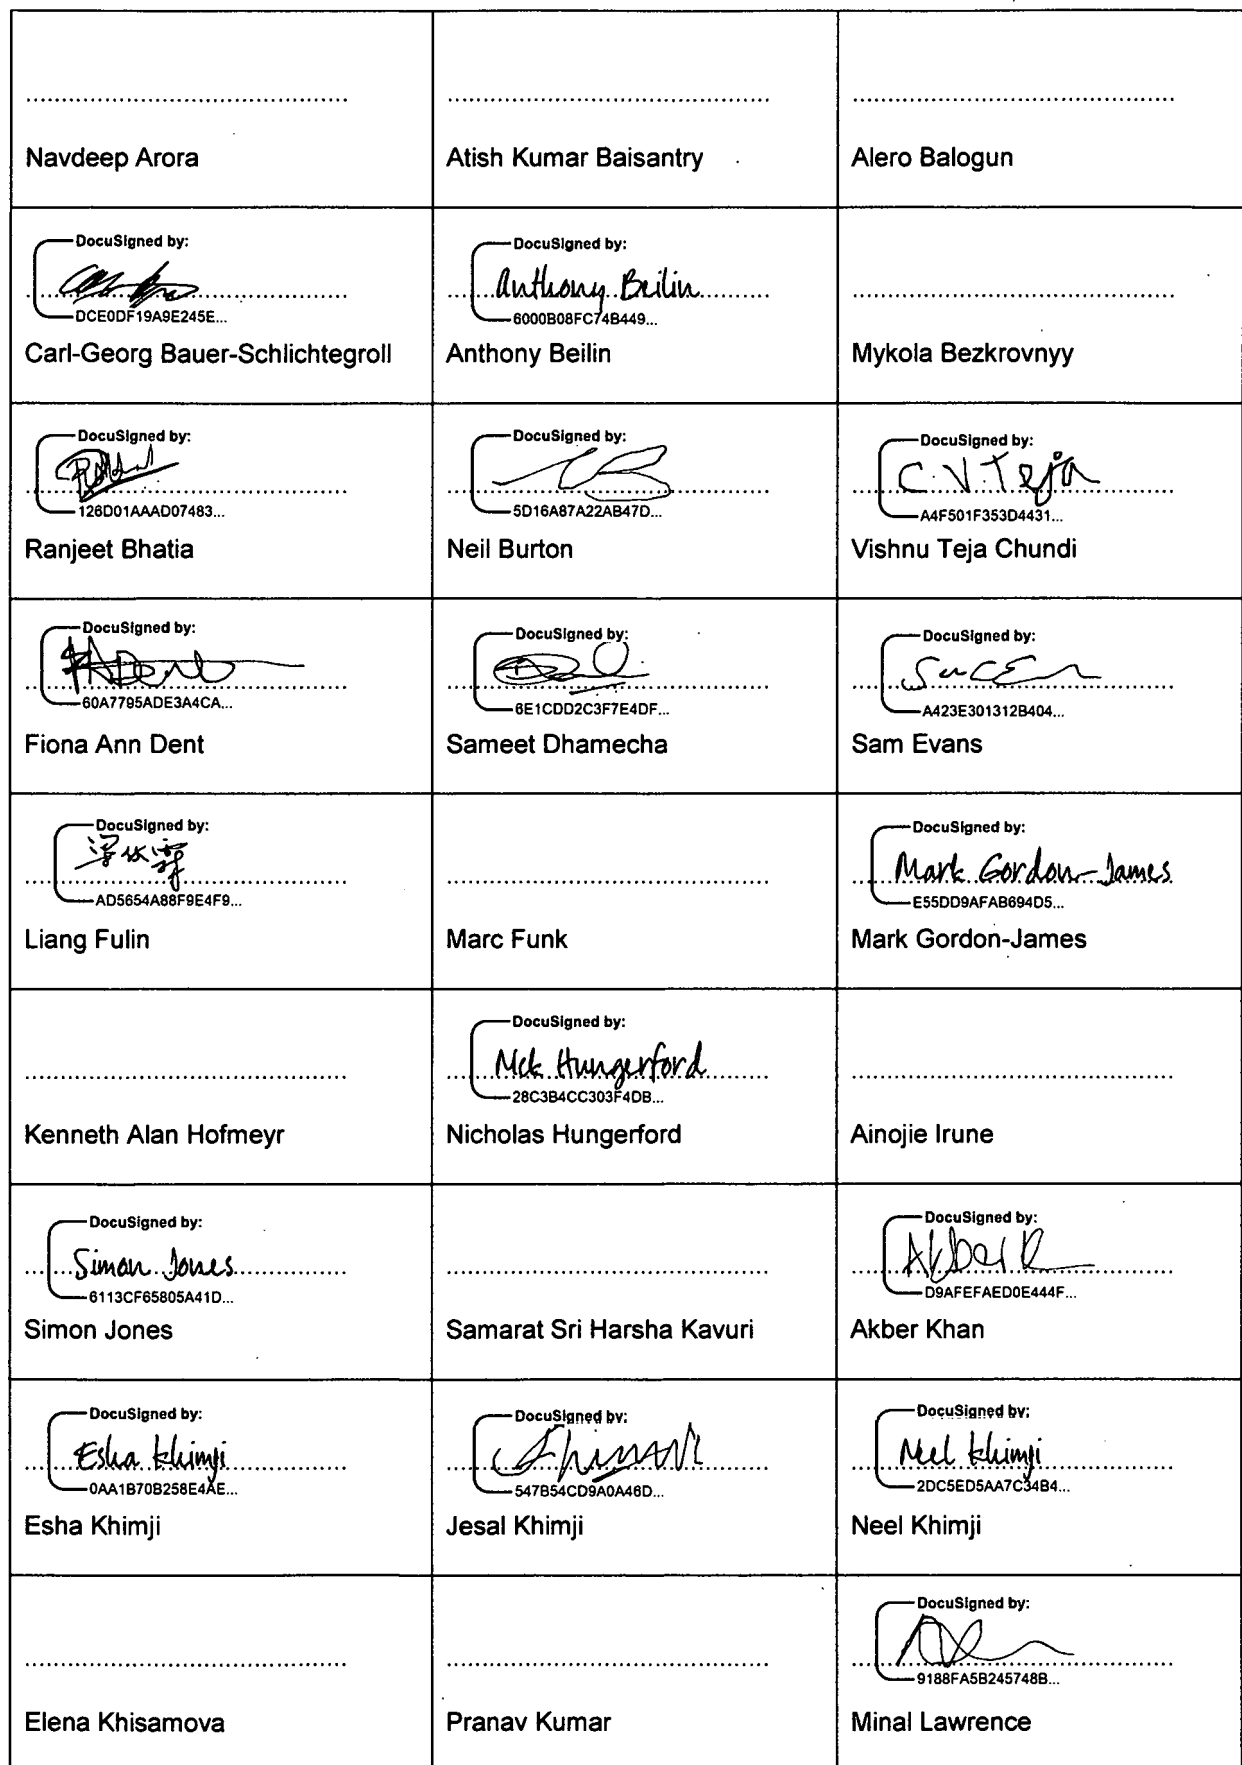 Navdeep Arora
Atish Kumar Baisantry
Alero Balogun
DocuSigned by:
DCE0DF19A9E245E...
Carl-Georg Bauer-Schlichtegroll
DocuSigned by:
Anthony Beilin
6000B08FC74B449...
Anthony Beilin
Mykola Bezkrovnyy
DocuSigned by:
126D01AAAD07483...
Ranjeet Bhatia
DocuSigned by:
5D16A87A22AB47D...
Neil Burton
DocuSigned by:
C.V.Teja
A4F501F353D4431...
Vishnu Teja Chundi
DocuSigned by:
60A7795ADE3A4CA...
Fiona Ann Dent
DocuSigned by:
6E1CDD2C3F7E4DF...
Sameet Dhamecha
DocuSigned by:
A423E301312B404...
Sam Evans
DocuSigned by:
AD5654A88F9E4F9...
Liang Fulin
Marc Funk
DocuSigned by:
Mark Gordon-James
E55DD9AFAB694D5...
Mark Gordon-James
Kenneth Alan Hofmeyr
DocuSigned by:
Nick Hungerford
28C3B4CC303F4DB...
Nicholas Hungerford
Ainojie Irune
DocuSigned by:
Simon Jones
6113CF65805A41D...
Simon Jones
Samarat Sri Harsha Kavuri
DocuSigned by:
Akber K
D9AFEFAED0E444F...
Akber Khan
DocuSigned by:
Esha Khimji
0AA1B70B258E4AE...
Esha Khimji
DocuSigned by:
547B54CD9A0A46D...
Jesal Khimji
DocuSigned by:
Neel Khimji
2DC5ED5AA7C34B4...
Neel Khimji
Elena Khisamova
Pranav Kumar
DocuSigned by:
9188FA5B245748B...
Minal Lawrence